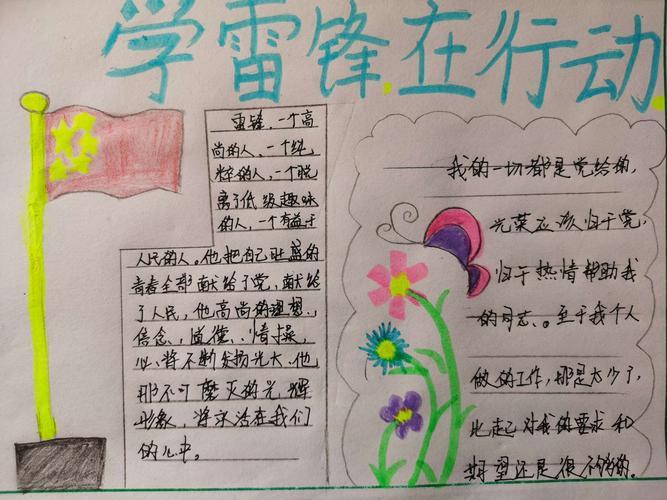 学雷锋在行动
雷锋，一个高
尚的人、一个纯
粹的人，一个脱
离了低级趣味
的人，一个有益于
人民的人。他把自己旺盛的
青春全部献给了党，献给
了人民，他高尚的理想、
信念、道德、情操，
必将不断发扬光大，他
那不可磨灭的光辉
形象，将永活在我们
的心中。
我的一切都是党给的，
光荣应该归于党，
归于热情帮助我
的同志、。至于我个人
做的工作，那是太少了，
比起对我的要求和
期望还是很不够的。